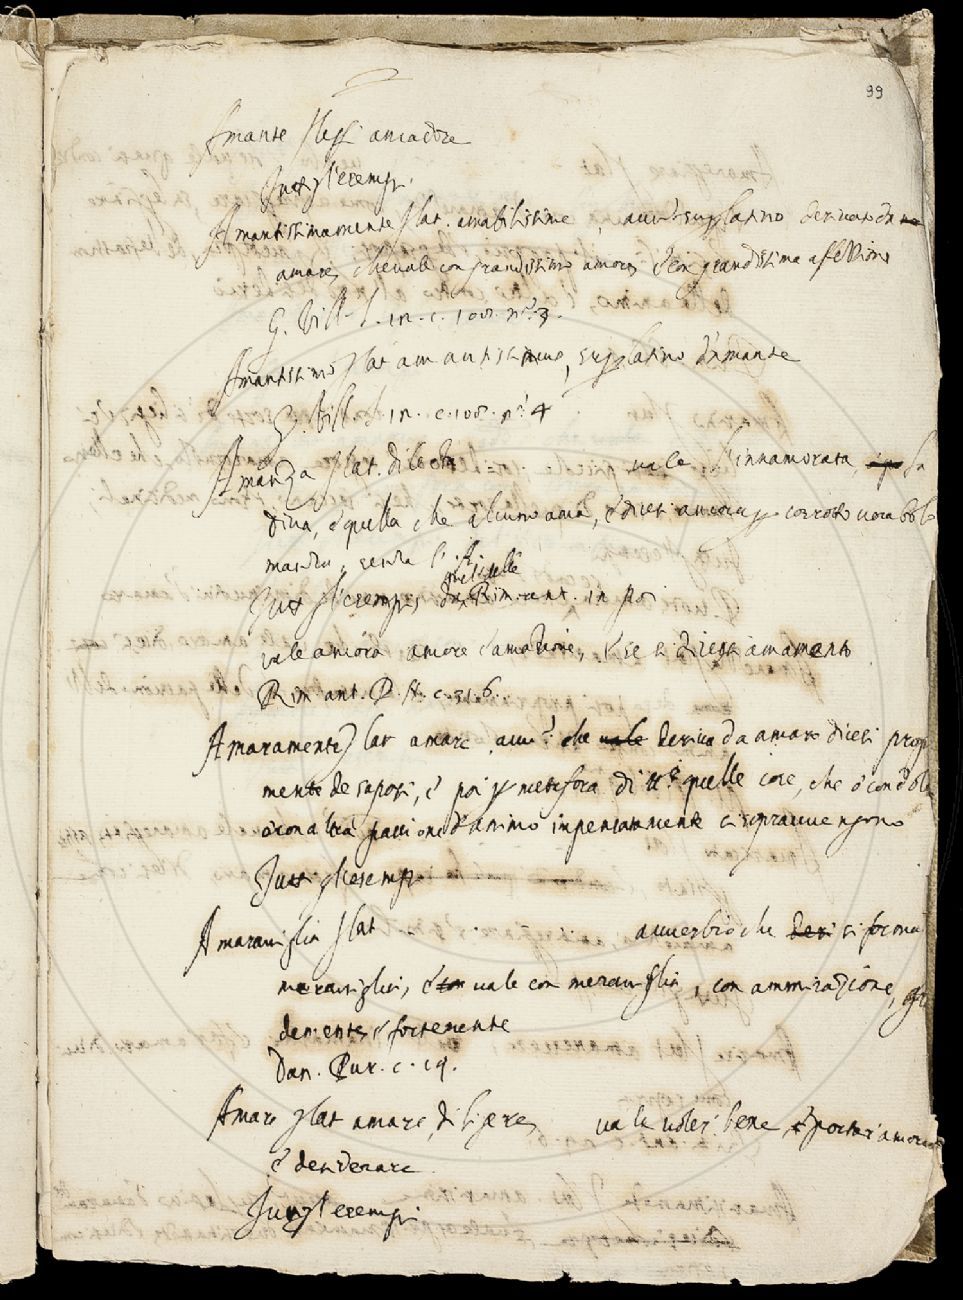 99
Amante
Tutti gl'esempi.
Amantissimamente lat. amabilissime, auu° superlatiuo deriuato da
amare, che uale con grandissimo amore, è con grandissima affettione
G. Vill. l. 11. c. 108. n° 3.
Amantissimo lat amantissimus, superlatiuo d'Amante
G. Vill. l. 11. c. 108. n° 4
Amanza lat. dilecta uale l'innamorata, la
diua, è quella che alcuno ama, è dicesi ancora p corrotto uocabolo
manza, senza l'A.
Tutti gl'esempi Rim. ant. in
uale ancora amore è amazione,
Rim ant. P. N. c. 316.
Amaramente lat amare auu° che uale deriua da amaro dicesi propria
mente de sapori, è poi p metafora di tt.e quelle cose, che ò con dolore
ò con altra passione d'animo inpensatamente ci soprauuengono
Tutti gl'esempi
Amarauiglia lat auuerbio che deri si forma
merauiglia, è con uale con merauiglia, con ammirazione,
demente, è fortemente
Dan. Pur. c. 19.
Amare lat amare, diligere, uale uoler bene, è portar amore
è desiderare
Tutti gl'esempi